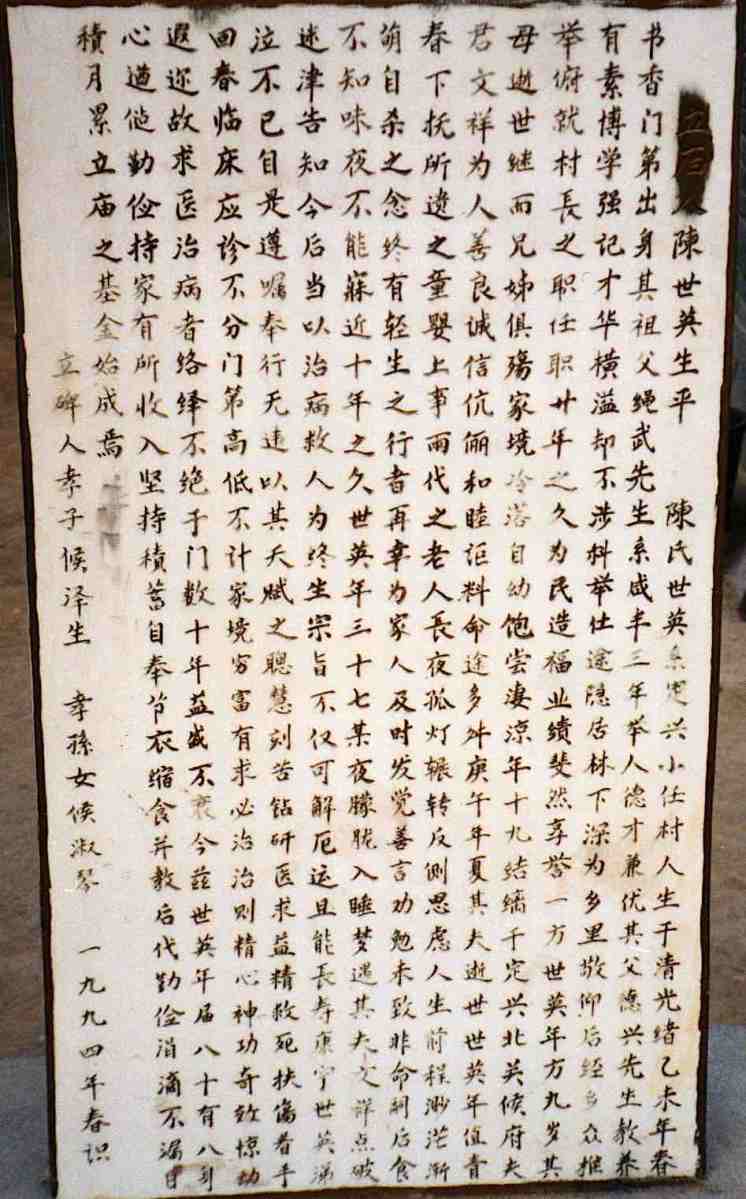 陳世英生平　陳氏世英系定兴小任村人生于清光绪乙未年春
书香门第出身其祖父绳武先生系咸丰三年举人德才兼优其父德兴先生教养
有素博学强记才华横溢却不涉科举仕途隐居林下深为乡里敬仰后经乡众推
举俯就村長之职任职廿年之久为民造福业绩斐然享誉一方世英年方九岁其
母逝世继而兄姊俱殇家境冷落自幼饱尝凄凉年十九结缡于定兴北关候府夫
君文祥为人善良诚信伉俪和睦讵料命途多舛庚午年夏其夫逝世世英年值青
春下抚所遗之童婴上事兩代之老人長夜孤灯辗转反侧思虑人生前程渺茫渐
萌自杀之念终有轻生之行者再幸为家人及时发觉善言劝勉未致非命嗣后食
不知味夜不能寐近十年之久世英年三十七某夜朦胧入睡梦遇其夫文祥点破
迷津告知今后当以治病救人为终生宗旨不仅可解厄运且能長寿康宁世英涕
泣不已自是遵嘱奉行无违以其天赋之聰慧刻苦钻研医求益精救死扶傷着手
回春临床应诊不分门第高低不计家境穷富有求必治治则精心神功奇效惊动
遐迩故求医治病者络绎不绝于门数十年益盛不衰今兹世英年届八十有八身
心遒健勤俭持家有所收入坚持積蓄自奉节衣缩食并教后代勤俭涓滴不漏日
積月累立庙之基金始成焉
立碑人孝子候泽生　孝孫女候淑琴　一九九四年春识